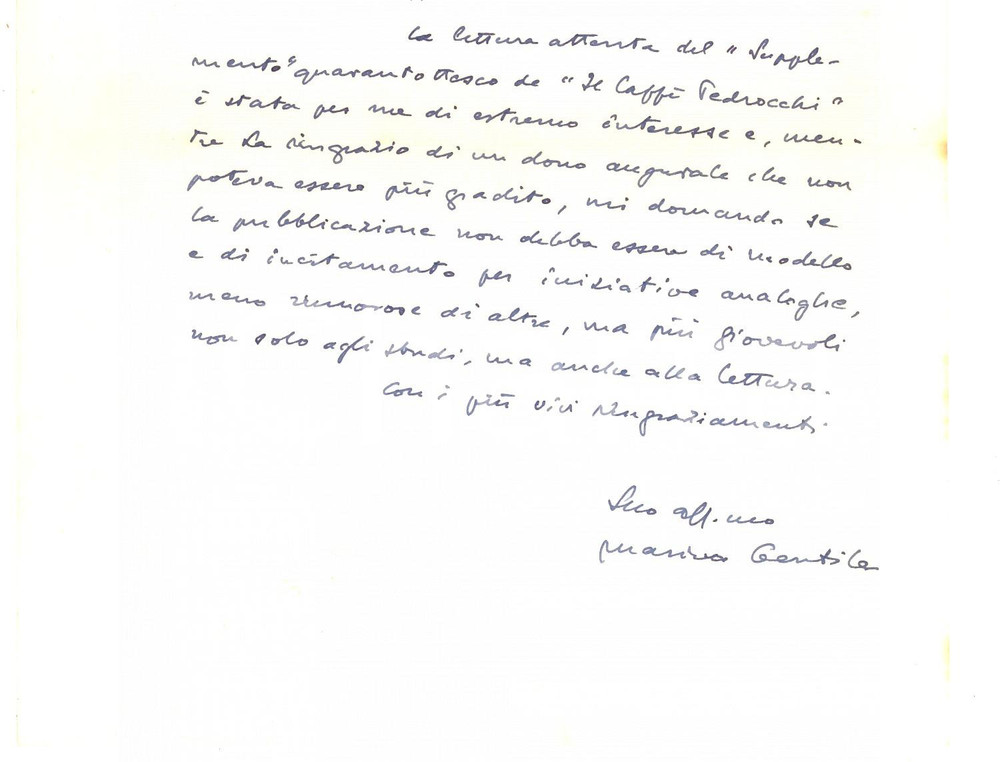 La lettura attenta del "Supple-
mento" quarantottesco de "Il Caffè Pedrocchi"
è stata per me di estremo interesse e, men-
tre La ringrazio di un dono augurale che non
poteva essere più gradito, mi domando se
la pubblicazione non debba essere di modello
e di incitamento per iniziative analoghe,
meno rumorose di altre, ma più giovevoli
non solo agli studi, ma anche alla lettura.
Con i più vivi ringraziamenti.
Suo aff.mo
Marino Gentile